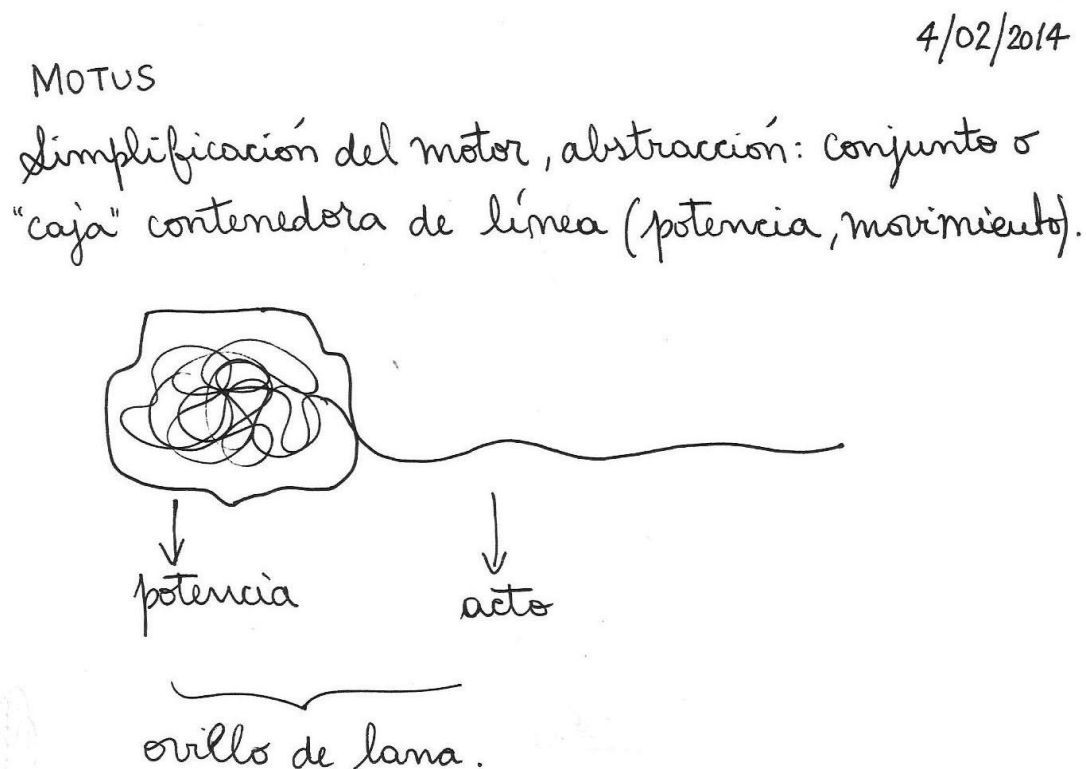 4/02/2014
MOTUS
Simplificación del motor, abstracción: conjunto o
"caja" contenedora de línea (potencia, movimiento).
potencia
acto
ovillo de lana.